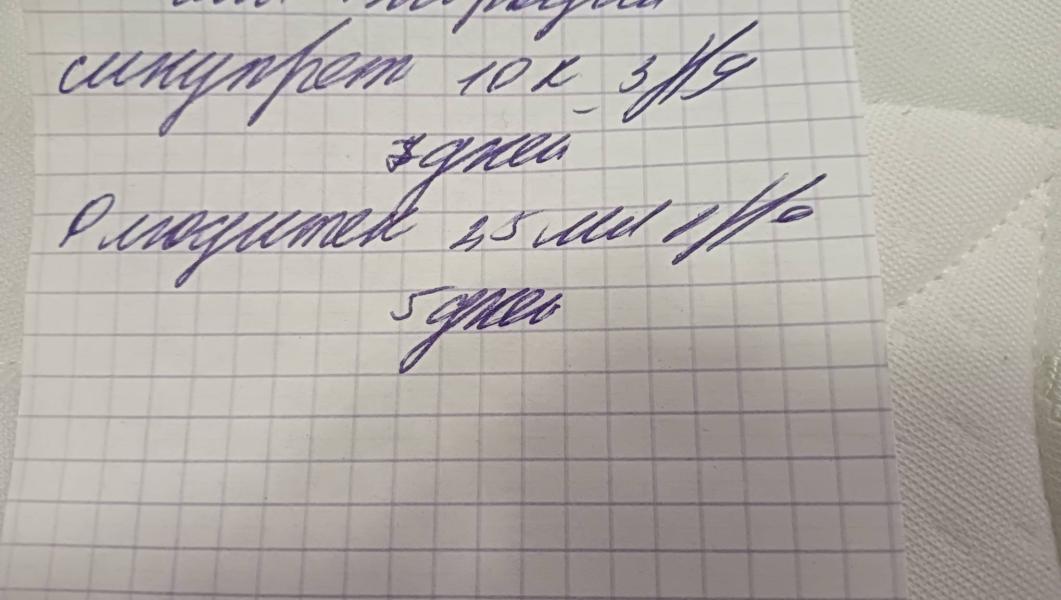 синупрет 10 к 3 р/д
7 дней
Флюдитек 2,5 мл 2 р/д
5 дней